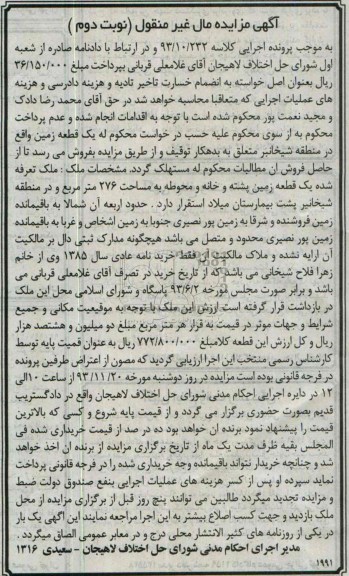 آگهی مزایده مال غیر منقول (نوبت دوم )
به موجب پرونده اجرایی کلاسه ۹۳/۱۰/۲۳۲ و در ارتباط با دادنامه صادره از شعبه
اول شورای حل اختلاف لاهیجان آقای غلامعلی قربانی بپرداخت مبلغ ۳۶/۱۵۰/۰۰۰
ریال بعنوان اصل خواسته به انضمام خسارت تاخیر تادیه و هزینه دادرسی و هزینه
های عملیات اجرایی که متعاقبا محاسبه خواهد شد در حق آقای محمد رضا دادک
و مجید نعمت پور محکوم شده است با توجه به اقدامات انجام شده و عدم پرداخت
محکوم به از سوی محکوم علیه حسب در خواست محکوم له یک قطعه زمین واقع
در منطقه شیخانبر متعلق به بدهکار توقیف و از طریق مزایده بفروش می رسد تا از
حاصل فروش ان مطالبات محکوم له مستهلک گردد. مشخصات ملک : ملک تعرفه
شده یک قطعه زمین پشته و خانه و محوطه به مساحت ۲۷۶ متر مربع و در منطقه
شیخانبر پشت بیمارستان میلاد استقرار دارد . حدود اربعه آن شمالا به باقیمانده
زمین فروشنده و شرقا به زمین پور نصیری جنوبا به زمین اشخاص و غربا به باقیمانده
زمین پور نصیری محدود و متصل می باشد هیچگونه مدارک ثبتی دال بر مالکیت
آن ارایه نشده و ملاک مالکیت فقط خرید نامه عادی سال ۱۳۸۵ وی از خانم
زهرا فلاح شیخانی می باشد که از تاریخ خرید در تصرف آقای غلامعلی قربانی می
باشد و برابر صورت مجلس مورخه ۹۳/۶/۲ پاسگاه و شورای اسلامی محل این ملک
در بازداشت قرار گرفته است ارزش این ملک با توجه به موقعیت مکانی و جمیع
شرایط و جهات موثر در قیمت به قرار هر متر مربع مبلغ دو میلیون و هشتصد هزار
ریال و کل ارزش این قطعه کلامبلغ ۷۷۲/۸۰۰/۰۰۰ ریال به عنوان قیمت پایه توسط
کارشناس رسمی منتخب این اجرا ارزیابی گردید که مصون از اعتراض طرفین پرونده
در فرجه قانونی بوده است مزایده در روز دوشنبه مورخه ۹۳/۱۱/۲۰ از ساعت ۱۰الی
۱۲ در دایره اجرایی احکام مدنی شورای حل اختلاف لاهیجان واقع در دادگستریب
قدیم بصورت حضوری برگزار می گردد و از قیمت پایه شروع و کسی که بالاترین
قیمت را پیشنهاد نمود برنده ان خواهد بود ده در صد از قیمت خریداری شده فی
المجلس بقیه ظرف مدت یک ماه از تاریخ برگزاری مزایده از برنده ان اخذ خواهد
شد و چنانچه خریدار نتواند باقیمانده وجه خریداری شده را در فرجه قانونی پرداخت
نماید سپرده او پس از کسر هزینه های عملیات اجرایی بنفع صندوق دولت ضبط
و مزایده تجدید میگردد طالبین می توانند پنج روز قبل از برگزاری مزایده از محل
ملک بازدید و جهت کسب اصلاع بیشتر به این اجرا مراجعه نمایند این آگهی یک بار
در یکی از روزنامه های کثیر الانتشار محلی درج و در معابر عمومی الصاق میگردد .
مدیر اجرای احکام مدنی شورای حل اختلاف لاهیجان – سعیدی ۱۳۱۶
۱۹۹۱